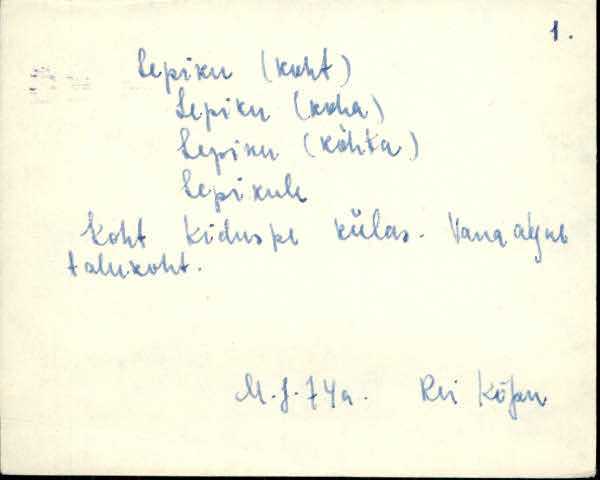 1.
Lepiku (koht)
Lepiku (koha)
Lepiku (kõhta)
Lepikule
Koht Kiduspe külas. Vana algne
talukoht.
M. J. 74a. Rei Kõpu